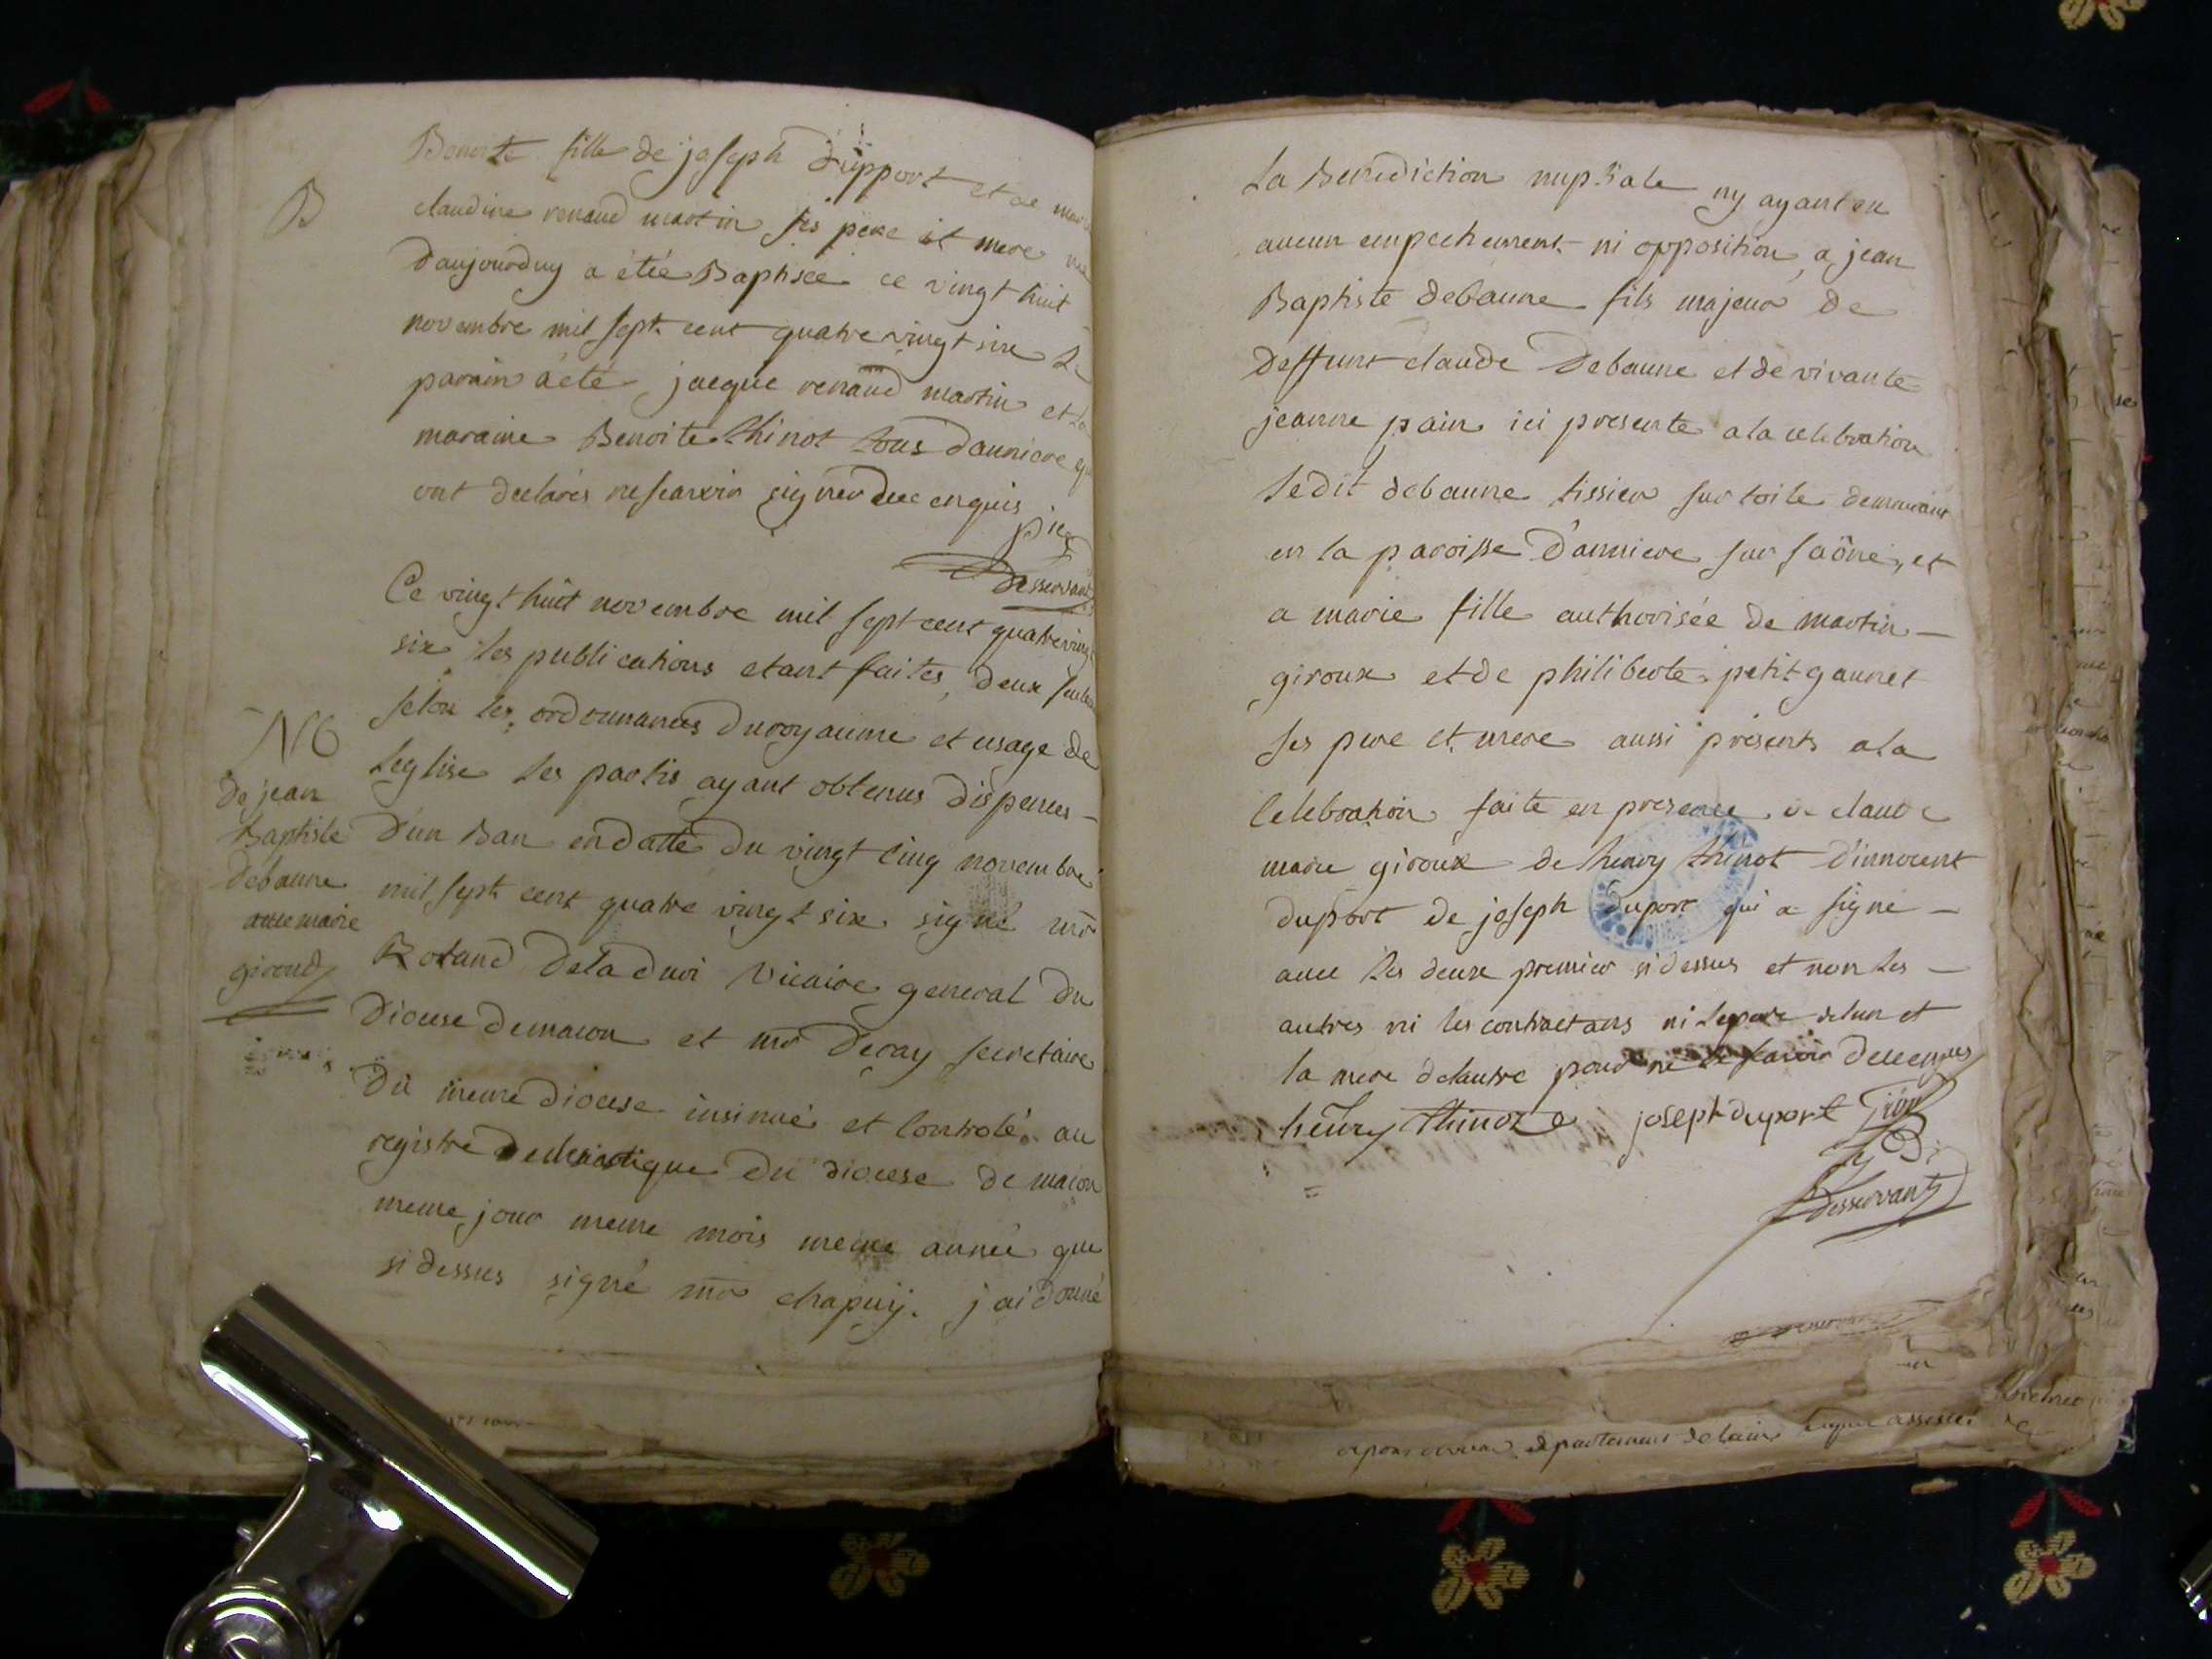 Benoite fille de joseph dupport et de marie
B
claudine renaud martin ses pere et mere née
daujourduy a étée Baptisée ce vingt huit
novembre mil sept cent quatre vingt six Le
parain a été jacque renaud martin et La
maraine Benoite thinot tous dauniere qui
ont declarés ne scavoir signer de ce enquis
desservant
Ce vingt huit novembre mil sept cent quatre vingt
six les publications etant faites, deux seules
selon les ordonnances du royaume et usage de
Leglise les partis ayant obtenus dispenses
d'un Ban en datte du vingt cinq novembre
mil sept cent quatre vingt six signé mr
Roland Vicaire general du
Diocese de macon et mr decay secretaire
du meme diocese insinué et controlé au
registre du diocese de macon
meme jour meme mois meme année que
si dessus signé mr chapuy. j ai donné
de jean
Baptiste
debaune
avec marie
giroud
La Benediction nuptiale ny ayant eu
aucun empechement ni opposition, a jean
Baptiste debaune fils majeur de
deffunt claude Debaune et de vivante
jeanne pain ici presente a la celebration
ledit debaune tissier sur toile demeurant
en la paroisse d'auniere sur saône, et
a marie fille authorisée de martin
giroux et de philiberte petit gaunet
ses pere et mere aussi présents a la
Celebration faite en presence de claude
marie giroux de henry thinot d'innocent
duport de joseph duport qui a signé
avec les deux premier si dessus et non les
autres ni les contractans ni le pere delun et
la mere delautre pour ne le scavoir de ce enquis
henry thinot joseph duport
desservant
departement de lain